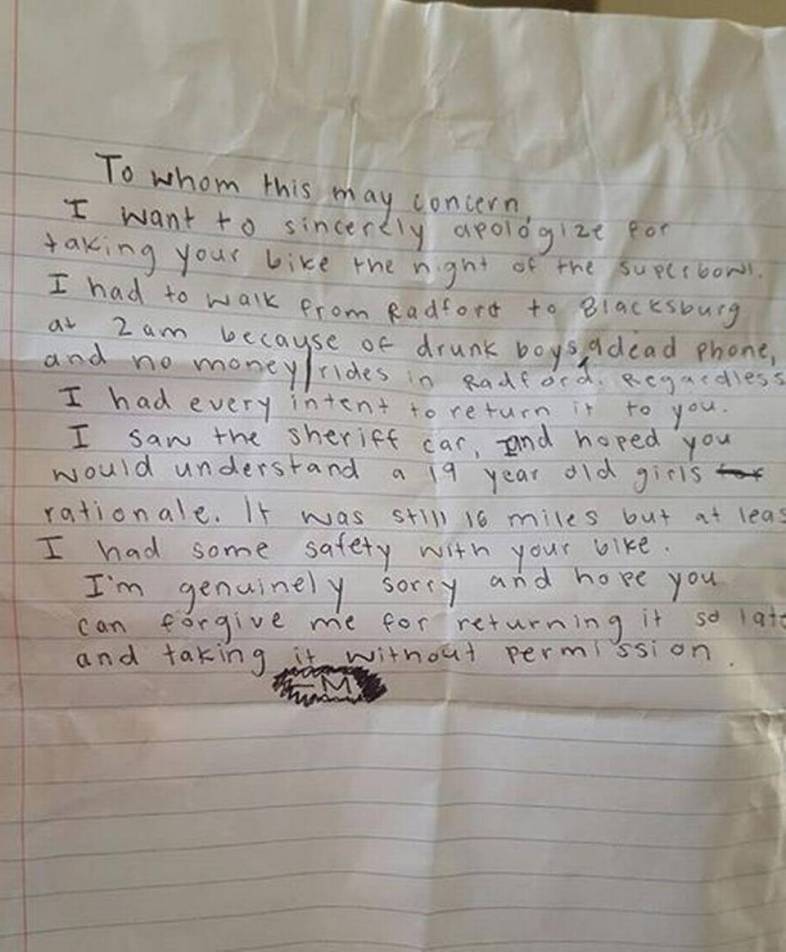 To whom this may concern,
I want to sincerely apologize for
taking your bike the night of the superbowl.
I had to walk from Radford to Blacksburg
at 2am because of drunk boys, a dead phone,
and no money/rides in Radford. Regardless
I had every intent to return it to you.
I saw the sheriff car, and hoped you
would understand a 19 year old girls for
rationale. It was still 16 miles but at leas
I had some safety with your bike.
I'm genuinely sorry and hope you
can forgive me for returning it so late
and taking it without permission.
-M